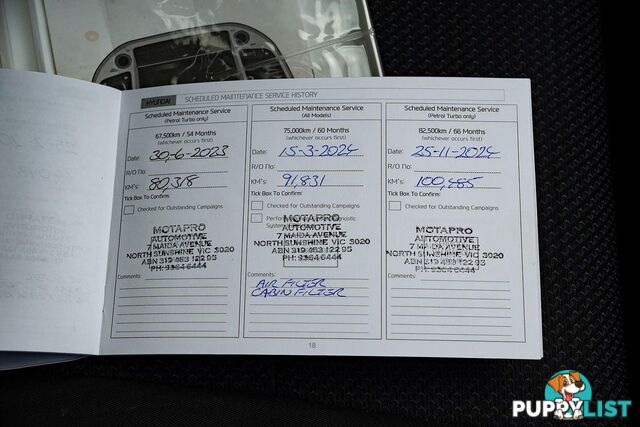 HYUNDAI SCHEDULED MAINTENANCE SERVICE HISTORY
Scheduled Maintenance Service
(Petrol Turbo only)
67,500km / 54 Months
(whichever occurs first)
Date: 30-6-2023
R/O No:
KM's: 80,318
Tick Box To Confirm:
Checked for Outstanding Campaigns
MOTAPRO
AUTOMOTIVE
7 MAIDA AVENUE
NORTH SUNSHINE VIC 3020
ABN 319 483 122 95
PH: 9364 6444
Comments:
Scheduled Maintenance Service
(All Models)
75,000km / 60 Months
(whichever occurs first)
Date: 15-3-2024
R/O No:
KM's: 91,831
Tick Box To Confirm:
Checked for Outstanding Campaigns
Perform Diagnostic
System
MOTAPRO
AUTOMOTIVE
7 MAIDA AVENUE
NORTH SUNSHINE VIC 3020
ABN 319 483 122 95
PH: 9364 6444
Comments:
AIR FILTER
CABIN FILTER
Scheduled Maintenance Service
(Petrol Turbo only)
82,500km / 66 Months
(whichever occurs first)
Date: 25-11-2024
R/O No:
KM's: 100,485
Tick Box To Confirm:
Checked for Outstanding Campaigns
MOTAPRO
AUTOMOTIVE
7 MAIDA AVENUE
NORTH SUNSHINE VIC 3020
ABN 319 483 122 95
PH: 9364 6444
Comments:
18
PUPPYLIST